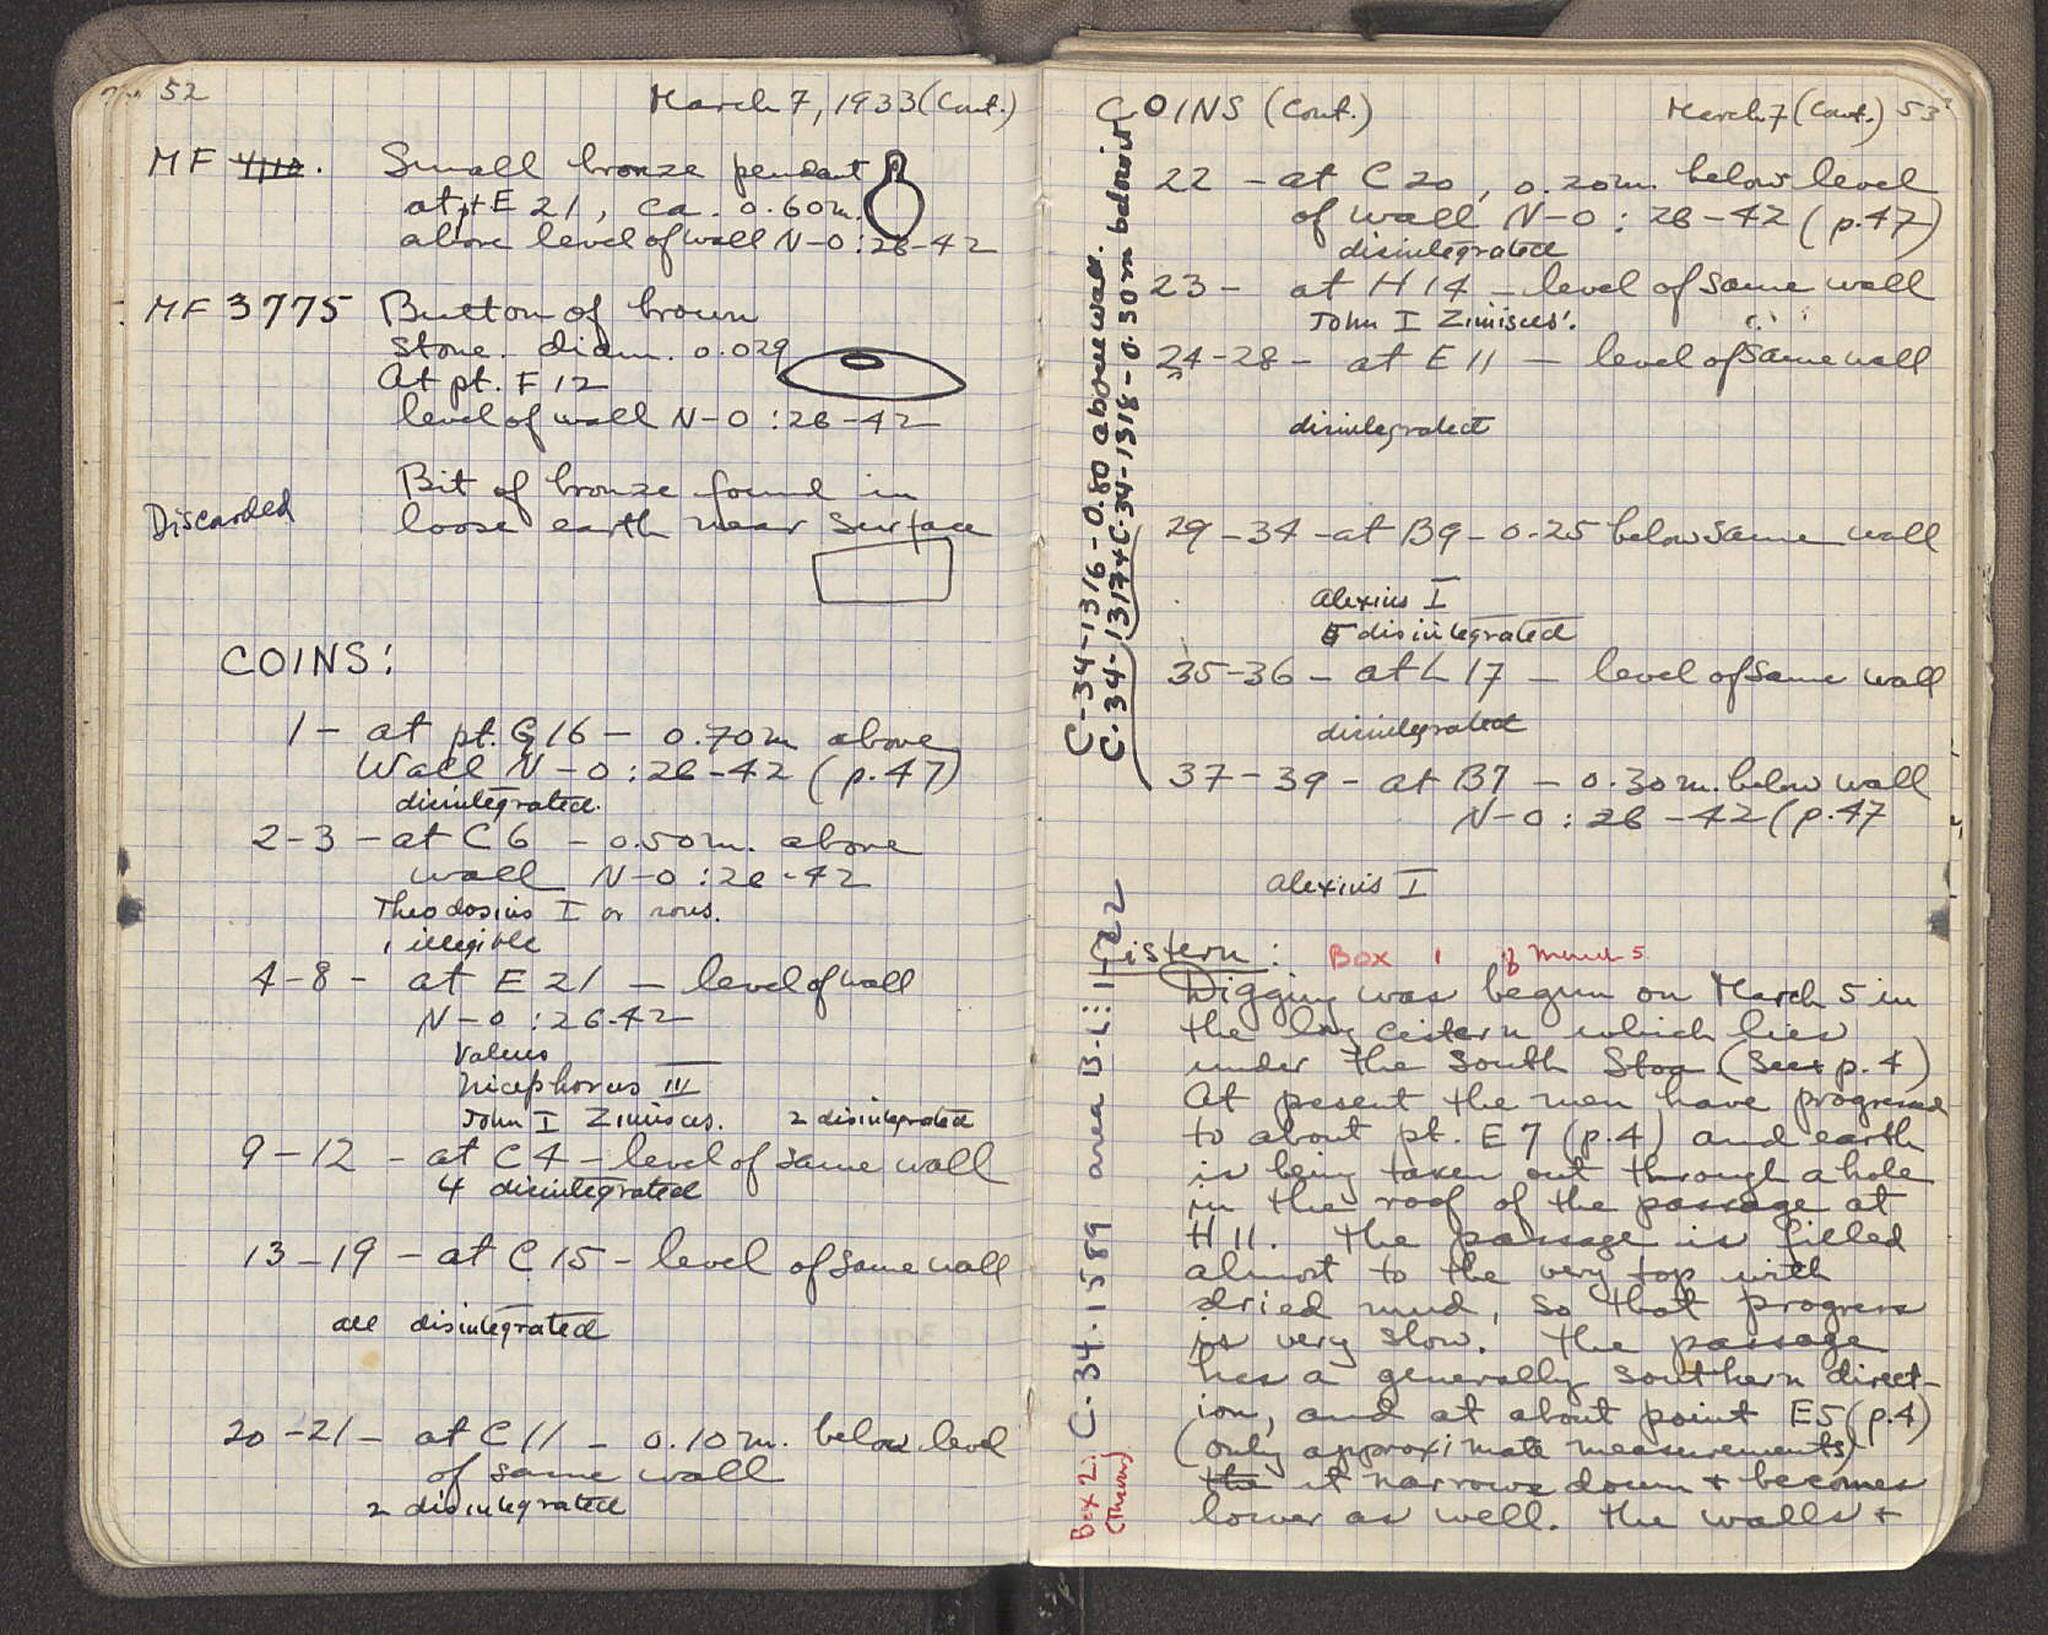 52 March 7, 1933 (Cont.)
MF 4110. Small bronze pendant
at pt E 21, ca. 0.60m.
above level of wall N-O:26-42
MF 3775 Button of brown
stone. diam. 0.029
At pt. F 12
level of wall N-O:26-42
Bit of bronze found in
Discarded loose earth near surface
COINS:
1 - at pt. G16 - 0.70m above
Wall N-O:26-42 (p.47)
disintegrated.
2-3 - at C6 - 0.50m. above
wall N-O:26-42
Theodosius I or
1 illegible
4-8 - at E 21 - level of wall
N-O:26-42
Valens
Nicephorus III
John I Zimisces. 2 disintegrated
9-12 - at C4 - level of same wall
4 disintegrated
13-19 - at C15 - level of same wall
all disintegrated
20-21 - at C11 - 0.10m. below level
of same wall
2 disintegrated
COINS (Cont.) March 7 (Cont.) 53
22 - at C20, 0.20m. below level
of wall N-O:26-42 (p.47)
disintegrated
23 - at H14 - level of same wall
John I Zimisces.
24-28 - at E11 - level of same wall
disintegrated
29-34 - at B9 - 0.25 below same wall
Alexius I
5 disintegrated
35-36 - at L17 - level of same wall
disintegrated
37-39 - at B7 - 0.30m. below wall
N-O:26-42 (p.47
Alexius I
Cistern: Box 1 of March 5
Digging was begun on March 5 in
the long cistern which lies
under the South Stoa (See p.4)
At present the men have progressed
to about pt. E7 (p.4) and earth
is being taken out through a hole
in the roof of the passage at
H11. The passage is filled
almost to the very top with
dried mud, so that progress
is very slow. The passage
has a generally southern direct-
ion, and at about point E5 (p.4)
(only approximate measurements)
the it narrows down + becomes
lower as well. The walls +
C-34-1316-0.80 above wall.
C-34-1317+C-34-1318-0.30m below
Box 2: C-34-1589 area B-L:1-22
(Thrown)